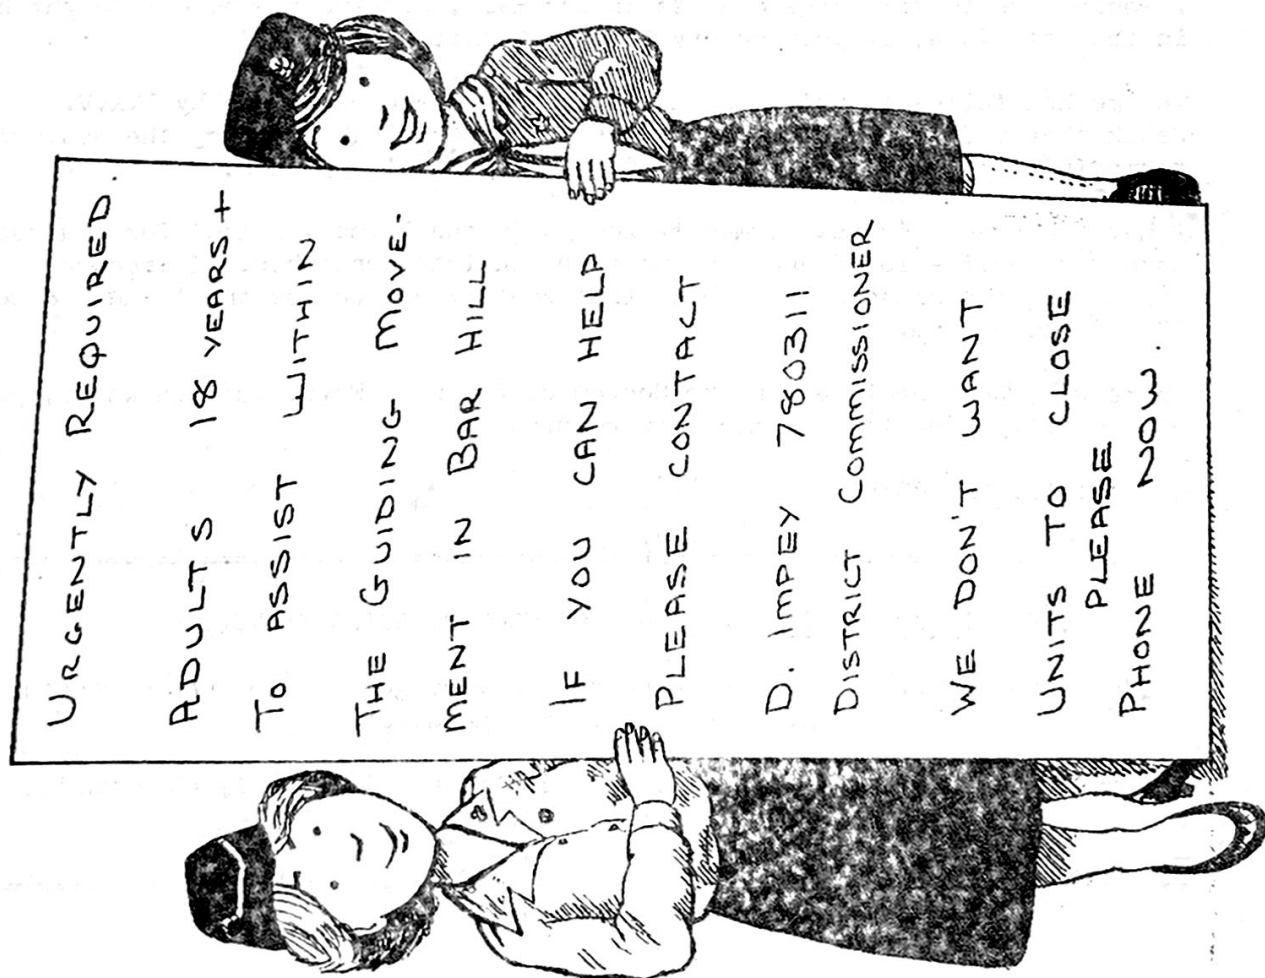 URGENTLY REQUIRED.
ADULTS 18 YEARS+
TO ASSIST WITHIN
THE GUIDING MOVE-
MENT IN BAR HILL
IF YOU CAN HELP
PLEASE CONTACT
D. IMPEY 780311
DISTRICT COMMISSIONER
WE DON'T WANT
UNITS TO CLOSE
PLEASE
PHONE NOW.